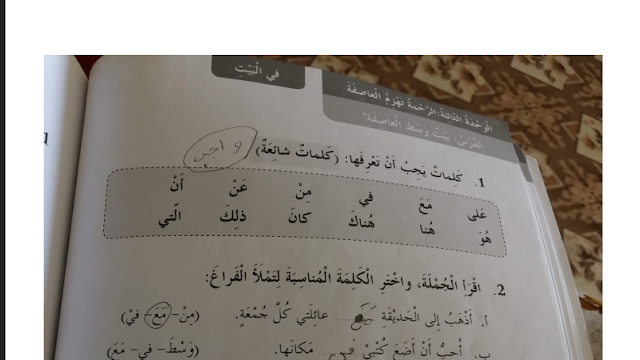 في الْبَيْتِ
الْوَحْدَةُ الثّالِثَةُ: الرَّحْمَةُ تَهْزِمُ الْعاصِفَةَ
الدَّرْسُ: بَيْتٌ وَسْطَ الْعاصِفَةِ
1. كَلِماتٌ يَجِبُ أَنْ تَعْرِفَها: (كَلِماتٌ شائِعَةٌ) واجب
عَلى مَعَ في مِنْ عَنْ أَنْ
هُوَ هُنا هُناكَ كانَ ذلِكَ الَّتي
2. اقْرَأِ الْجُمْلَةَ، واخْتَرِ الْكَلِمَةَ الْمُناسِبَةَ لِتَمْلَأَ الْفَراغَ:
أ. أَذْهَبُ إِلى الْحَديقَةِ مع عائِلَتي كُلَّ جُمْعَةٍ. (مِنْ- مَعَ- في)
ب. أُحِبُّ أَنْ أَضَعَ كُتُبي في مَكانِها. (وَسْطَ- في- مَعَ)